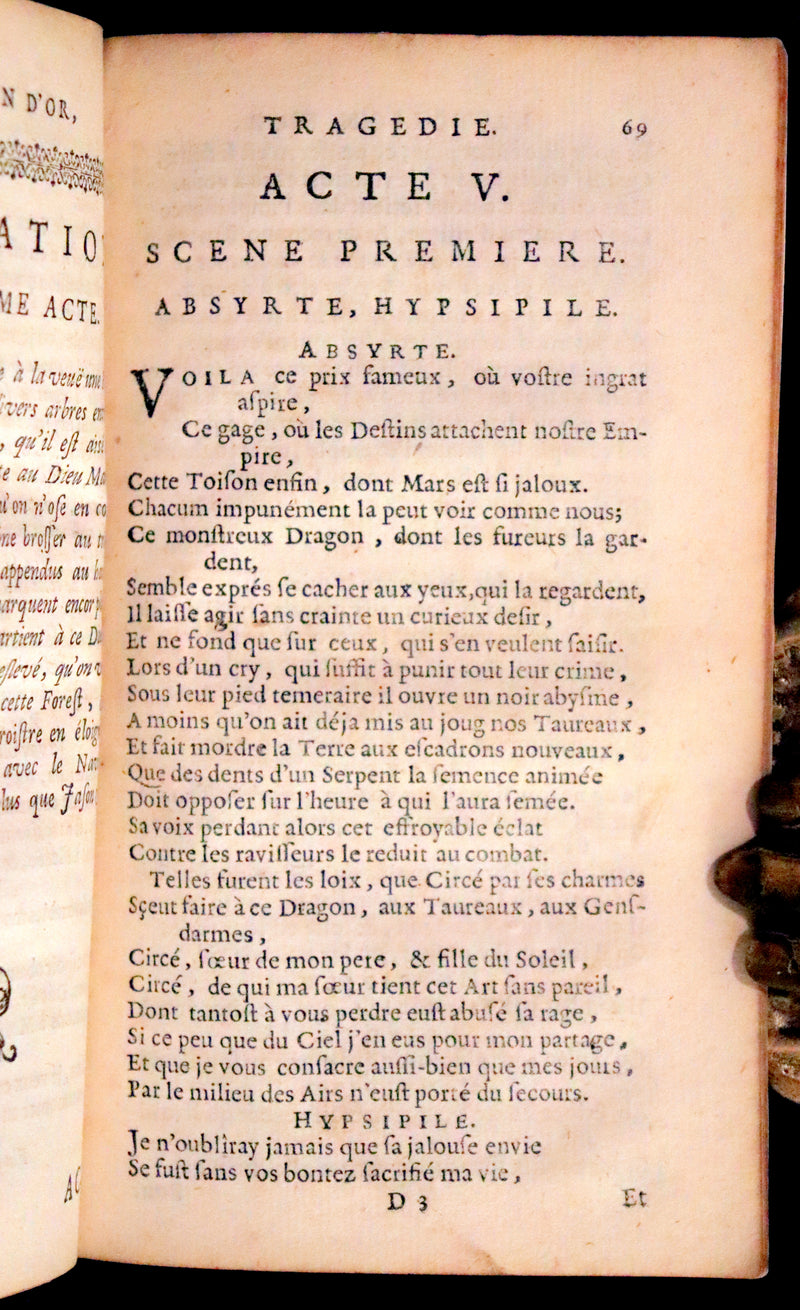 N D'OR,
ME ACTE.
à la veuë
vers arbres
qu'il est
te au Dieu
u'on n'ose en
appendus au
arquent
artient à ce
eslevé, qu'on
cette Forest,
roistre en
avec le
lus que
TRAGEDIE. 69
ACTE V.
SCENE PREMIERE.
ABSYRTE, HYPSIPILE.
ABSYRTE.
VOILA ce prix fameux, où vostre ingrat
aspire,
Ce gage, où les Destins attachent nostre Em-
pire,
Cette Toison enfin, dont Mars est si jaloux.
Chacum impunément la peut voir comme nous;
Ce monstreux Dragon, dont les fureurs la gar-
dent,
Semble exprés se cacher aux yeux, qui la regardent,
Il laisse agir sans crainte un curieux desir,
Et ne fond que sur ceux, qui s'en veulent saisir.
Lors d'un cry, qui suffit à punir tout leur crime,
Sous leur pied temeraire il ouvre un noir abysme,
A moins qu'on ait déja mis au joug nos Taureaux,
Et fait mordre la Terre aux escadrons nouveaux,
Que des dents d'un Serpent la semence animée
Doit opposer sur l'heure à qui l'aura semée.
Sa voix perdant alors cet effroyable éclat
Contre les ravisseurs le reduit au combat.
Telles furent les loix, que Circé par ses charmes
Sçeut faire à ce Dragon, aux Taureaux, aux Gens-
darmes,
Circé, sœur de mon pere, & fille du Soleil,
Circé, de qui ma sœur tient cet Art sans pareil,
Dont tantost à vous perdre eust abusé sa rage,
Si ce peu que du Ciel j'en eus pour mon partage,
Et que je vous consacre aussi-bien que mes jours,
Par le milieu des Airs n'eust porté du secours.
HYPSIPILE.
Je n'oublîray jamais que sa jalouse envie
Se fust sans vos bontez sacrifié ma vie,
D 3 Et